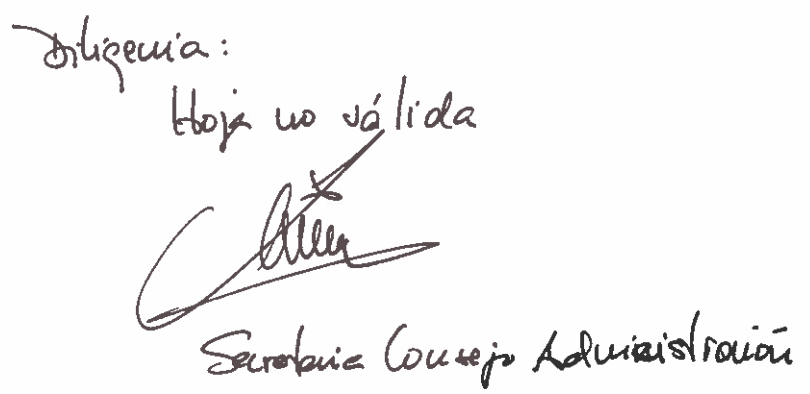 Diligencia:
Hoja no válida
Secretaria Consejo Administración